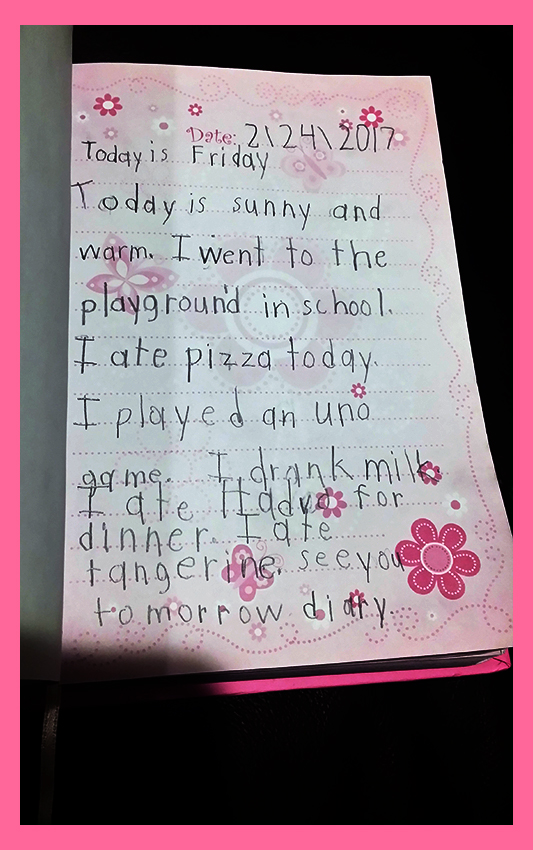 Date: 2\24\2017
Today is Friday
Today is sunny and
warm. I went to the
playground in school.
I ate pizza today.
I played an uno
game. I drank milk.
I ate for
dinner. I ate
tangerine. see you
tomorrow diary.